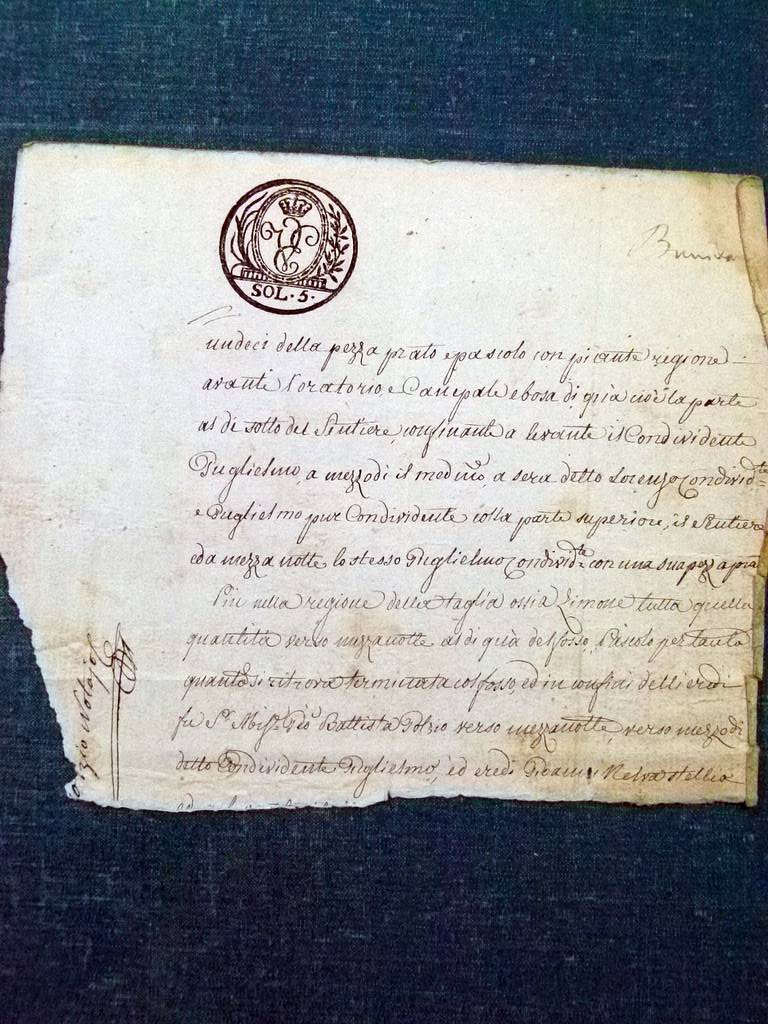 SOL. 5.
undeci della pezza prato e pascolo con picante regione
avanti l'oratorio, e Canepale e bosa di quà cioè la parte
al di sotto del Sentiere, confinante a levante il Condividente
Guglielmo, a mezzodi il medmo, a sera detto Lorenzo Condividte
e Guglielmo pur Condividente colla parte superiore, il Sentiere
ed a mezza notte lo stesso Guglielmo Condividte con una sua pezza
Più nella regione della taglia ossia Limone tutta quella
quantità verso mezzanotte al di quà del fosso, Pascolo per tanta
quanto si ritrova terminata col fosso, ed in confini delli eredi
fu Sr Gio Battista verso mezzanotte, verso mezzodi
detto Condividente Guglielmo, ed eredi
Notajo